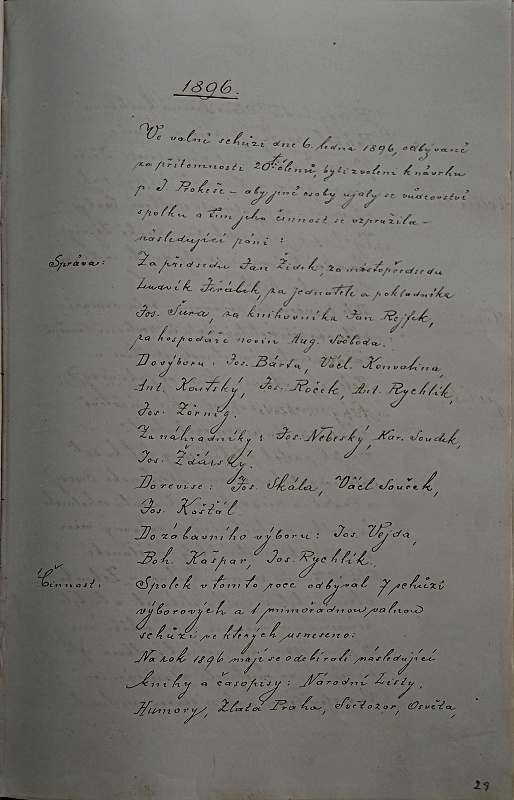 1896.
Ve valné schůzi dne 6. ledna 1896, odbývané
za přítomnosti 20ti členů, byli zvoleni k návrhu
p. J. Prokeše – aby jiné osoby ujaly se vůdcovství
spolku a tím jeho činnost se vzpružila –
následující páni:
Správa: Za předsedu Jan Žídek, za místopředsedu
Ludvík Jeřábek, za jednatele a pokladníka
Jos. Šura, za knihovníka Jan Rejfek,
za hospodáře novin Aug. Svoboda.
Do výboru: Jos. Bárta, Václ. Konvalina,
Ant. Koutský, Jos. Roček, Ant. Rychlík,
Jos. Zörnig.
Za náhradníky: Jos. Nebeský, Kar. Soudek,
Jos. Žďárský.
Do revise: Jos. Skála, Václ. Souček,
Jos. Košťál.
Do zábavního výboru: Jos. Vejda,
Boh. Kašpar, Jos. Rychlík.
Činnost: Spolek v tomto roce odbýval 7 schůzí
výborových a 1 mimořádnou valnou
schůzi ve kterých usneseno:
Na rok 1896 mají se odebírati následující
knihy a časopisy: Národní Listy,
Humory, Zlatá Praha, Světozor, Osvěta,
29